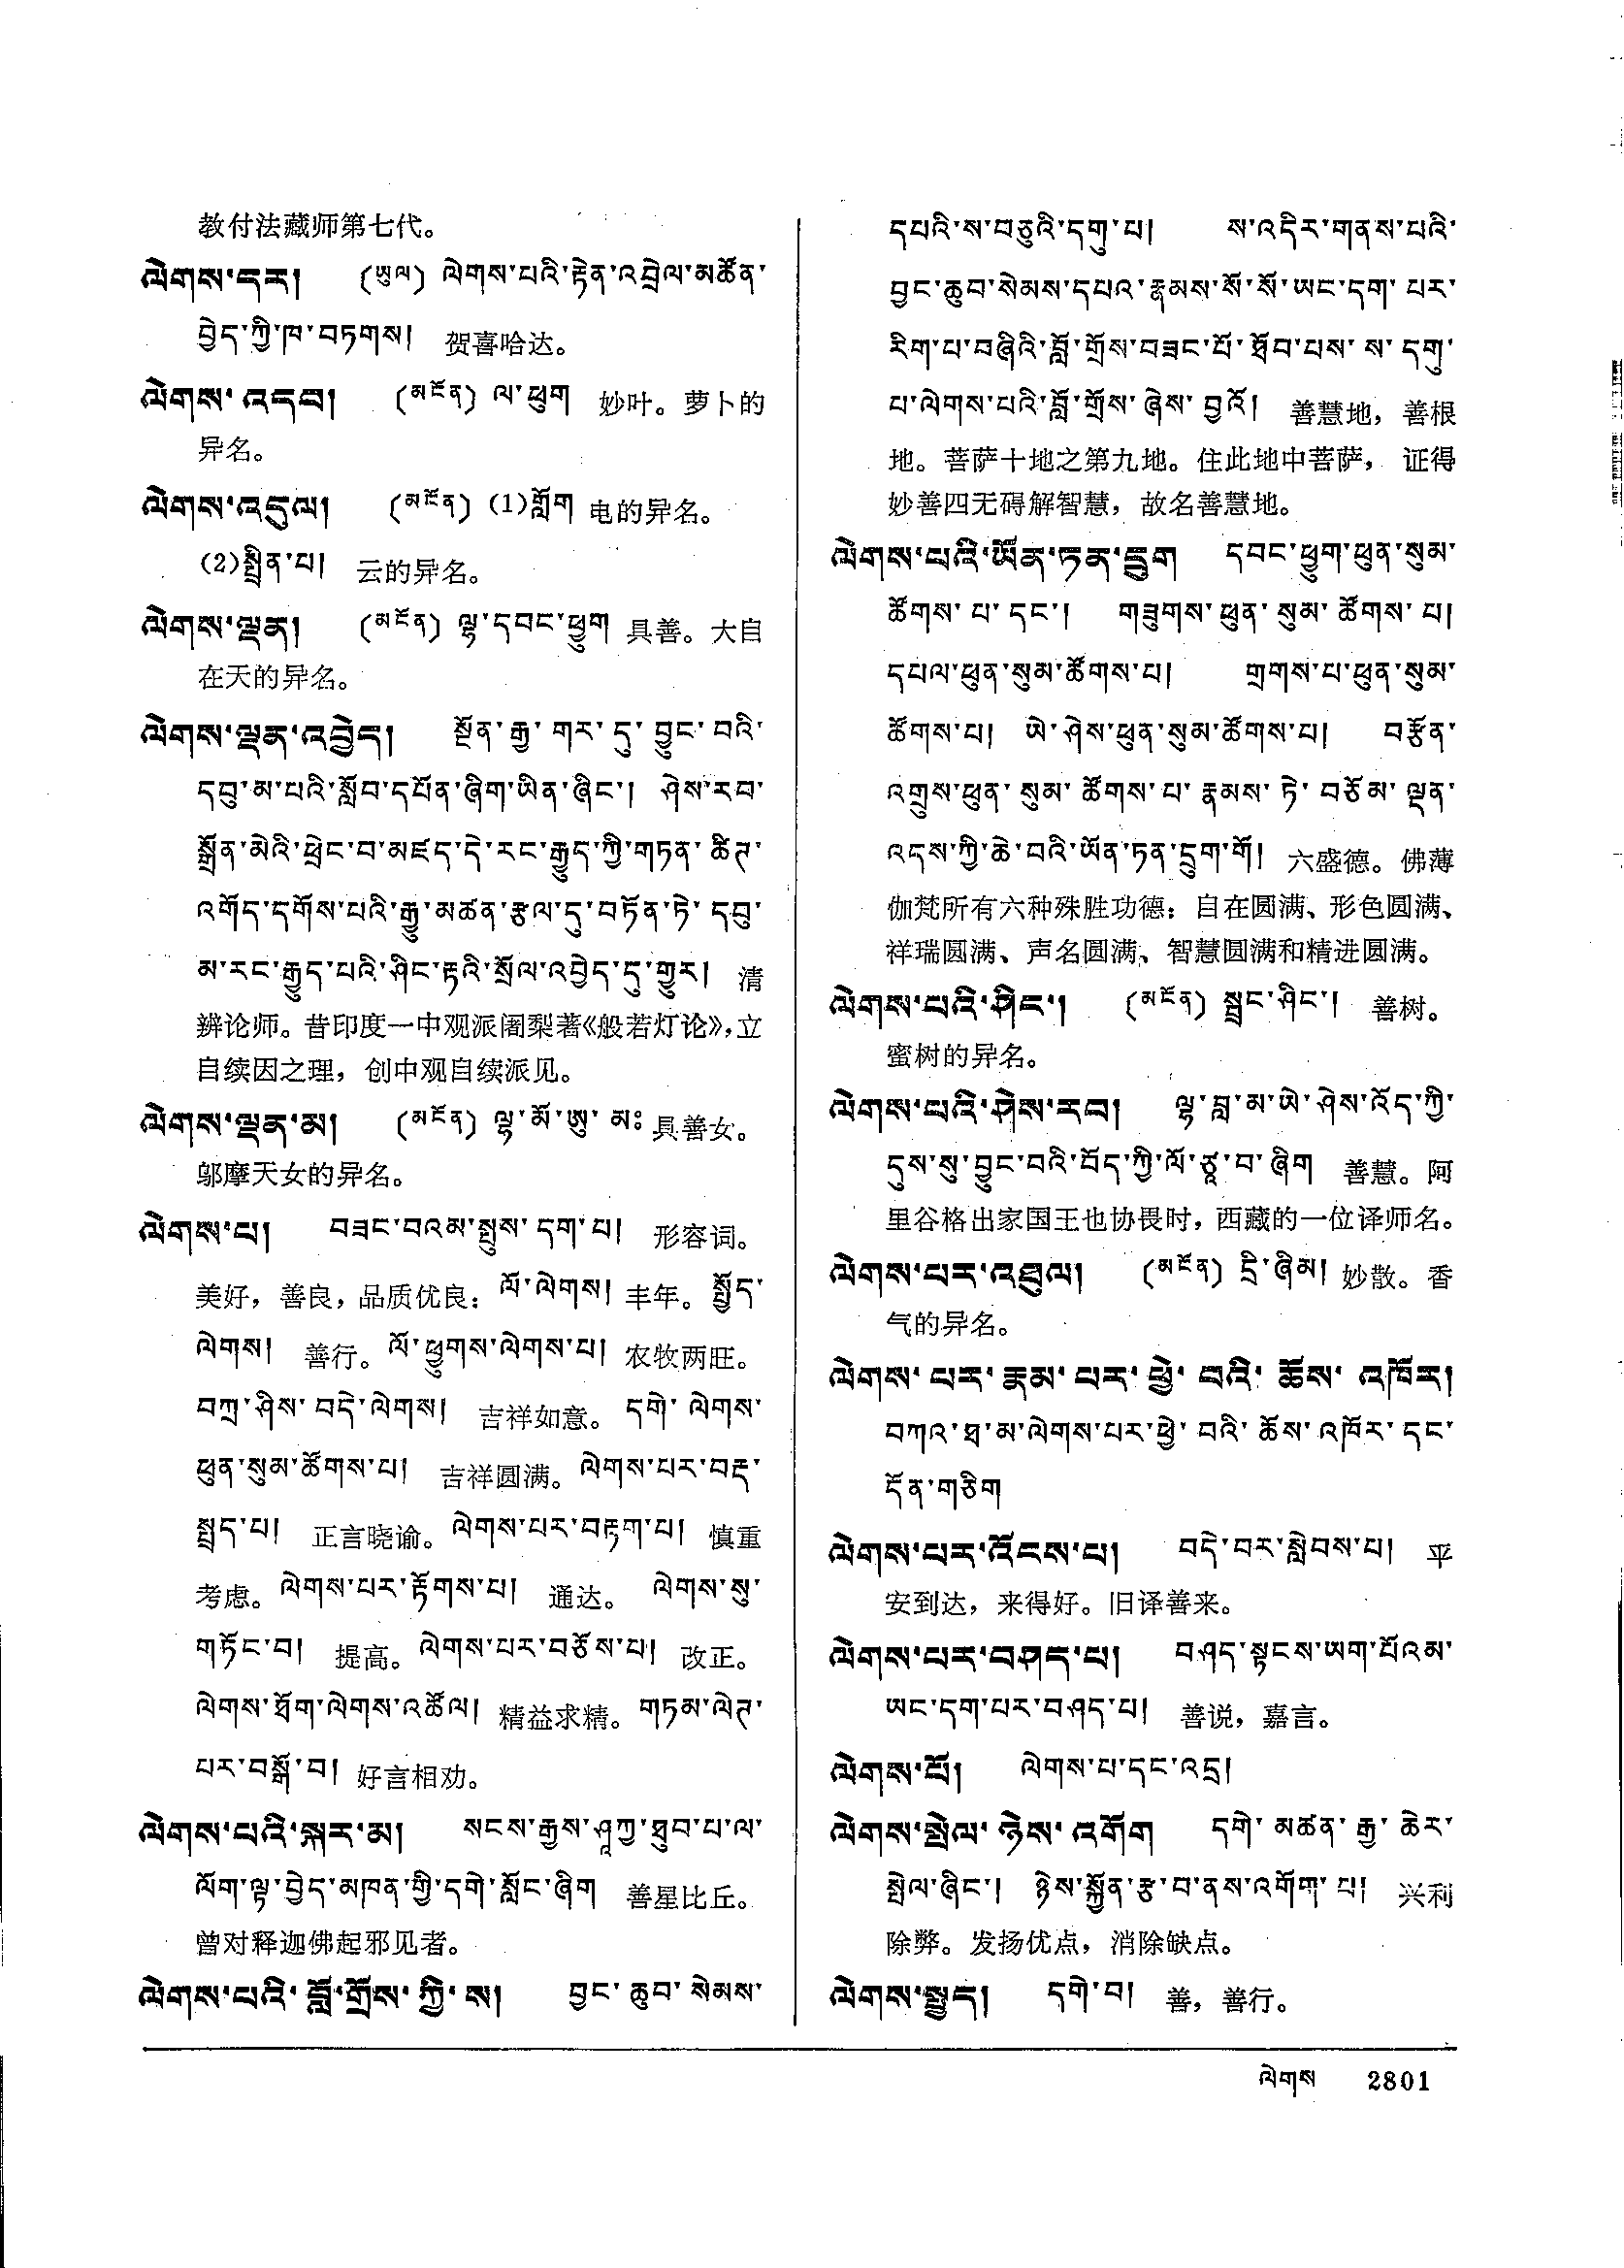 教付法藏师第七代。
ལེགས་དར། (ཡུལ) ལེགས་པའི་རྟེན་འབྲེལ་མཚོན་
བྱེད་ཀྱི་ཁ་བཏགས། 贺喜哈达。
ལེགས་འདབ། (མངོན) ལ་ཕུག 妙叶。萝卜的
异名。
ལེགས་འདུལ། (མངོན) (1)གློག 电的异名。
(2)སྤྲིན་པ། 云的异名。
ལེགས་ལྡན། (མངོན) ལྷ་དབང་ཕྱུག 具善。大自
在天的异名。
ལེགས་ལྡན་འབྱེད། སྔོན་རྒྱ་གར་དུ་བྱུང་བའི་
དབུ་མ་པའི་སློབ་དཔོན་ཞིག་ཡིན་ཞིང་། ཤེས་རབ་
སྒྲོན་མེའི་ཕྲེང་བ་མཛད་དེ་རང་རྒྱུད་ཀྱི་གཏན་ཚིཊ་
འགོད་དགོས་པའི་རྒྱུ་མཚན་རྩལ་དུ་བཏོན་ཏེ་དབུ་
མ་རང་རྒྱུད་པའི་ཤིང་རྟའི་སྲོལ་འབྱེད་དུ་གྱུར། 清
辨论师。昔印度一中观派阇梨著《般若灯论》，立
自续因之理，创中观自续派见。
ལེགས་ལྡན་མ། (མངོན) ལྷ་མོ་ཨུ་མཿ 具善女。
邬摩天女的异名。
ལེགས་པ། བཟང་བའམ་སྤུས་དག་པ། 形容词。
美好，善良，品质优良：ལོ་ལེགས། 丰年。སྤྱོད་
ལེགས། 善行。ལོ་ཕྱུགས་ལེགས་པ། 农牧两旺。
བཀྲ་ཤིས་བདེ་ལེགས། 吉祥如意。དགེ་ལེགས་
ཕུན་སུམ་ཚོགས་པ། 吉祥圆满。ལེགས་པར་བརྡ་
སྤྲད་པ། 正言晓谕。ལེགས་པར་བརྟག་པ། 慎重
考虑。ལེགས་པར་རྟོགས་པ། 通达。 ལེགས་སུ་
གཏོང་བ། 提高。ལེགས་པར་བཅོས་པ། 改正。
ལེགས་ཐོག་ལེགས་འཚོལ། 精益求精。གཏམ་ལེཊ་
པར་བསྒོ་བ། 好言相劝。
ལེགས་པའི་སྐར་མ། སངས་རྒྱས་ཤཱཀྱ་ཐུབ་པ་ལ་
ལོག་ལྟ་བྱེད་མཁན་གྱི་དགེ་སློང་ཞིག 善星比丘。
曾对释迦佛起邪见者。
ལེགས་པའི་བློ་གྲོས་ཀྱི་ས། བྱང་ཆུབ་སེམས་
དཔའི་ས་བཅུའི་དགུ་པ། ས་འདིར་གནས་པའི་
བྱང་ཆུབ་སེམས་དཔའ་རྣམས་སོ་སོ་ཡང་དག་པར་
རིག་པ་བཞིའི་བློ་གྲོས་བཟང་པོ་ཐོབ་པས་ས་དགུ་
པ་ལེགས་པའི་བློ་གྲོས་ཞེས་བྱའོ། 善慧地，善根
地。菩萨十地之第九地。住此地中菩萨，证得
妙善四无碍解智慧，故名善慧地。
ལེགས་པའི་ཡོན་ཏན་དྲུག དབང་ཕྱུག་ཕུན་སུམ་
ཚོགས་པ་དང་། གཟུགས་ཕུན་སུམ་ཚོགས་པ།
དཔལ་ཕུན་སུམ་ཚོགས་པ། གྲགས་པ་ཕུན་སུམ་
ཚོགས་པ། ཡེ་ཤེས་ཕུན་སུམ་ཚོགས་པ། བརྩོན་
འགྲུས་ཕུན་སུམ་ཚོགས་པ་རྣམས་ཏེ་བཅོམ་ལྡན་
འདས་ཀྱི་ཆེ་བའི་ཡོན་ཏན་དྲུག་གོ། 六盛德。佛薄
伽梵所有六种殊胜功德：自在圆满、形色圆满、
祥瑞圆满、声名圆满、智慧圆满和精进圆满。
ལེགས་པའི་ཤིང་། (མངོན) སྦྲང་ཤིང་། 善树。
蜜树的异名。
ལེགས་པའི་ཤེས་རབ། ལྷ་བླ་མ་ཡེ་ཤེས་འོད་ཀྱི་
དུས་སུ་བྱུང་བའི་བོད་ཀྱི་ལོ་ཙཱ་བ་ཞིག 善慧。阿
里谷格出家国王也协畏时，西藏的一位译师名。
ལེགས་པར་འཐུལ། (མངོན) དྲི་ཞིམ། 妙散。香
气的异名。
ལེགས་པར་རྣམ་པར་ཕྱེ་བའི་ཆོས་འཁོར།
བཀའ་ཐ་མ་ལེགས་པར་ཕྱེ་བའི་ཆོས་འཁོར་དང་
དོན་གཅིག
ལེགས་པར་འོངས་པ། བདེ་བར་སླེབས་པ། 平
安到达，来得好。旧译善来。
ལེགས་པར་བཤད་པ། བཤད་སྟངས་ཡག་པོའམ་
ཡང་དག་པར་བཤད་པ། 善说，嘉言。
ལེགས་པོ། ལེགས་པ་དང་འདྲ།
ལེགས་སྤེལ་ཉེས་འགོག དགེ་མཚན་རྒྱ་ཆེར་
སྤེལ་ཞིང་། ཉེས་སྐྱོན་རྩ་བ་ནས་འགོག་པ། 兴利
除弊。发扬优点，消除缺点。
ལེགས་སྤྱད། དགེ་བ། 善，善行。
ལེགས 2801